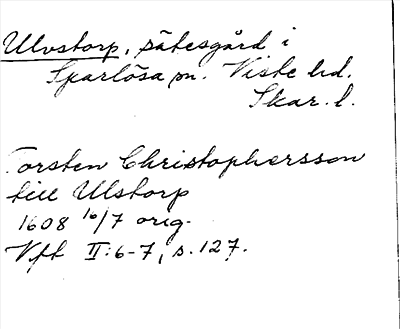 Ulvstorp, sätesgård i
Sparlösa sn. Viste hd.
Skar. l.
Torsten Christophersson
till Ulstorp
1608 16/7 orig.
Vft II:6-7, s. 127.